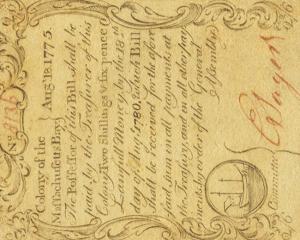 Colony of the
Massachusetts Bay Aug. 18. 1775.
The Possessor of this Bill shall be
paid by the Treasurer of this
Colony Two Shillings & Sixpence
Lawfull Money by the 18th
day of Aug. 1780. & such Bill
shall be received for the aforesaid
sum in all payments at
the Treasury, and in all other pay-
ments by order of the General
Assembly.
Committee